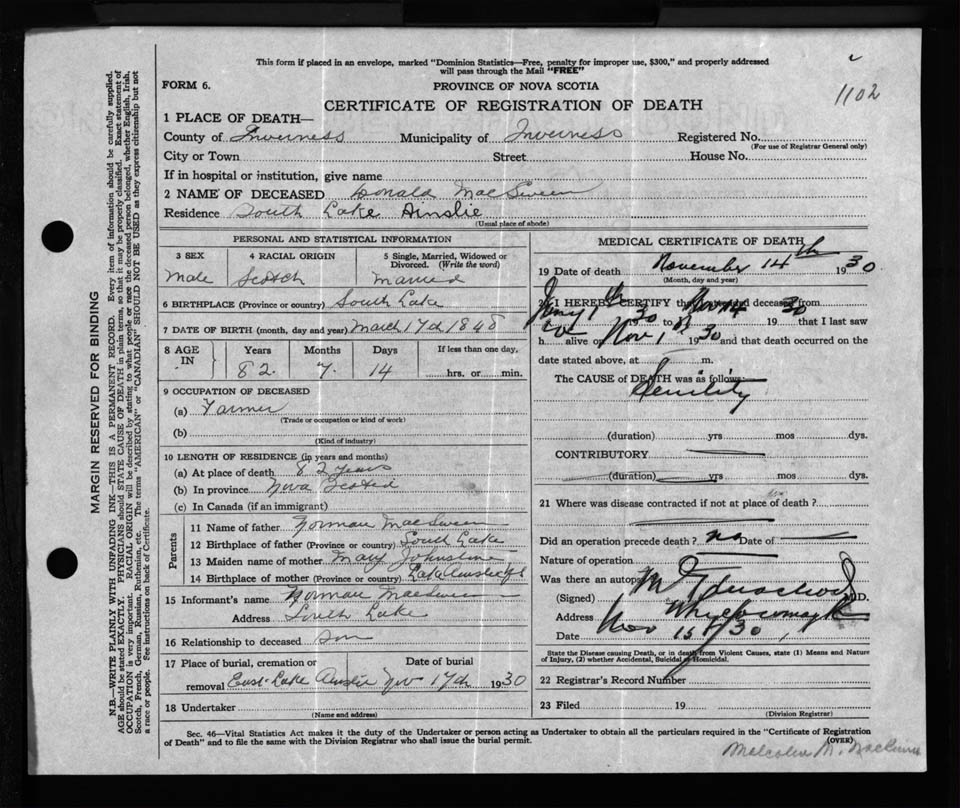 This form if placed in an envelope, marked "Dominion Statistics—Free, penalty for improper use, $300," and properly addressed
will pass through the Mail "FREE"
FORM 6.
PROVINCE OF NOVA SCOTIA
1102
CERTIFICATE OF REGISTRATION OF DEATH
1 PLACE OF DEATH—
County of Inverness Municipality of Inverness Registered No.
(For use of Registrar General only)
City or Town Street House No.
If in hospital or institution, give name
2 NAME OF DECEASED Donald MacSween
Residence South Lake Ainslie
(Usual place of abode)
PERSONAL AND STATISTICAL INFORMATION
3 SEX 4 RACIAL ORIGIN 5 Single, Married, Widowed or
Divorced. (Write the word)
Male Scotch Married
6 BIRTHPLACE (Province or country) South Lake
7 DATE OF BIRTH (month, day and year) March 17th 1848
8 AGE IN Years Months Days If less than one day,
82 7 14 hrs. or min.
9 OCCUPATION OF DECEASED
(a) Farmer
(Trade or occupation or kind of work)
(b)
(Kind of industry)
10 LENGTH OF RESIDENCE (in years and months)
(a) At place of death 82 years
(b) In province Nova Scotia
(c) In Canada (if an immigrant)
Parents
11 Name of father Norman MacSween
12 Birthplace of father (Province or country) South Lake
13 Maiden name of mother Mary Johnston
14 Birthplace of mother (Province or country) Lake Ainslie
15 Informant's name Norman MacSween
Address South Lake
16 Relationship to deceased son
17 Place of burial, cremation or Date of burial
removal East Lake Ainslie Nov 17th 1930
18 Undertaker
(Name and address)
MEDICAL CERTIFICATE OF DEATH
19 Date of death November 14th 1930
(Month, day and year)
20 I HEREBY CERTIFY that I attended deceased from
30 to Nov 14 19 30 that I last saw
h alive on Nov 1 1930 and that death occurred on the
date stated above, at m.
The CAUSE of DEATH was as follows:
Senility
(duration) yrs mos dys.
CONTRIBUTORY
(duration) yrs mos dys.
21 Where was disease contracted if not at place of death?
Did an operation precede death? no Date of
Nature of operation
Was there an autopsy
(Signed) M.D.
Address Whycocomagh
Date Nov 15/30
State the Disease causing Death, or in death from Violent Causes, state (1) Means and Nature
of Injury, (2) whether Accidental, Suicidal or Homicidal.
22 Registrar's Record Number
23 Filed 19
(Division Registrar)
Sec. 46—Vital Statistics Act makes it the duty of the Undertaker or person acting as Undertaker to obtain all the particulars required in the "Certificate of Registration
of Death" and to file the same with the Division Registrar who shall issue the burial permit.
(OVER)
Malcolm M.
MARGIN RESERVED FOR BINDING
N.B.—WRITE PLAINLY WITH UNFADING INK—THIS IS A PERMANENT RECORD. Every item of information should be carefully supplied.
AGE should be stated EXACTLY. PHYSICIANS should STATE CAUSE OF DEATH in plain terms, so that it may be properly classified. Exact statement of
OCCUPATION is very important. RACIAL ORIGIN will be described by stating to what people or race the deceased person belonged, whether English, Irish,
Scotch, French, German, Russian, Ruthenian, etc. The terms "AMERICAN" or "CANADIAN" SHOULD NOT BE USED as they express citizenship but not
a race or people. See instructions on back of Certificate.